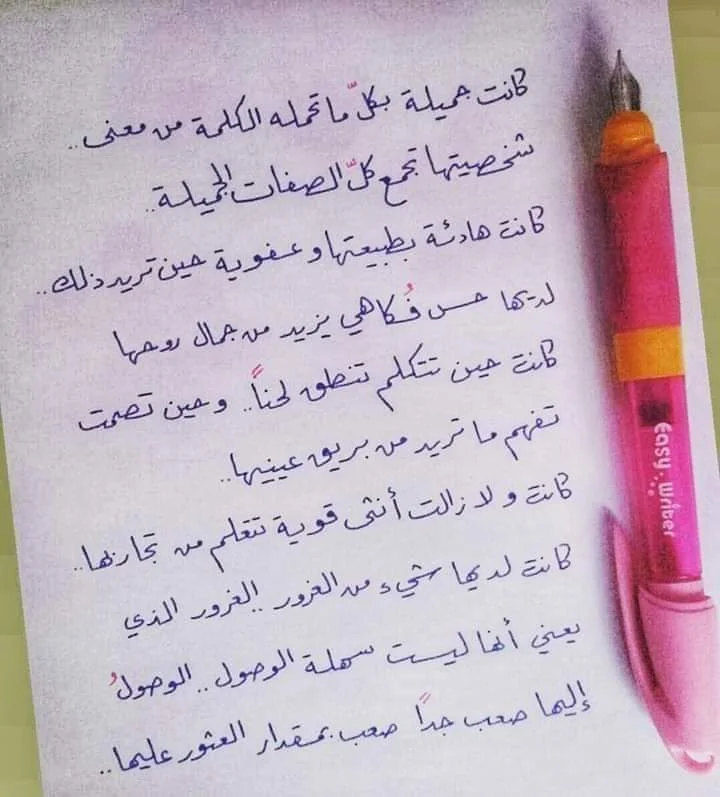 كانت جميلة بكلّ ما تحمله الكلمة من معنى..
شخصيتها تجمع كلّ الصفات الجميلة..
كانت هادئة بطبيعتها و عفوية حين تريد ذلك..
لديها حس فُكاهي يزيد من جمال روحها
كانت حين تتكلم تنطق لحناً.. وحين تصمت
تفهم ما تريد من بريق عينيها..
كانت و لا زالت أنثى قوية تتعلم من تجاربها..
كانت لديها شيء من الغرور.. الغرور الذي
يعني أنها ليست سهلة الوصول.. الوصولُ
إليها صعب جداً صعب بمقدار العثور عليها..
Easy Writer